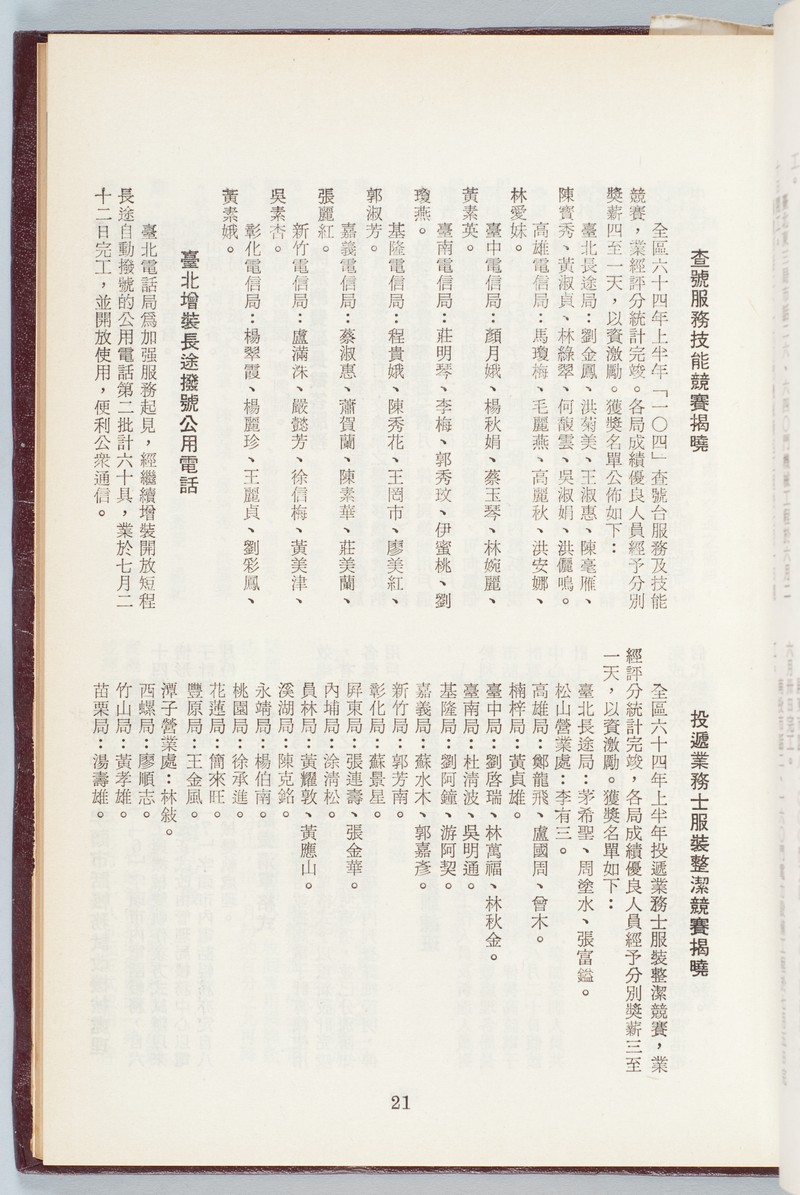 查號服務技能競賽揭曉
全區六十四年上半年「一〇四」查號台服務及技能
競賽，業經評分統計完竣。各局成績優良人員經予分別
獎薪四至一天，以資激勵。獲獎名單公佈如下：
臺北長途局：劉金鳳、洪菊美、王淑惠、陳毫雁、
陳寶秀、黃淑貞、林綠翠、何馥雲、吳淑娟、洪儷鳴。
高雄電信局：馬瓊梅、毛麗燕、高麗秋、洪安娜、
林愛妹。
臺中電信局：顏月娥、楊秋娟、蔡玉琴、林婉麗、
黃素英。
臺南電信局：莊明琴、李梅、郭秀玫、伊蜜桃、劉
瓊燕。
基隆電信局：程貴娥、陳秀花、王罔市、廖美紅、
郭淑芳。
嘉義電信局：蔡淑惠、蕭賀蘭、陳素華、莊美蘭、
張麗紅。
新竹電信局：盧滿洙、嚴懿芳、徐信梅、黃美津、
吳素杏。
彰化電信局：楊翠霞、楊麗珍、王麗貞、劉彩鳳、
黃素娥。
臺北增裝長途撥號公用電話
臺北電話局爲加强服務起見，經繼續增裝開放短程
長途自動撥號的公用電話第二批計六十具，業於七月二
十二日完工，並開放使用，便利公衆通信。
投遞業務士服裝整潔競賽揭曉
全區六十四年上半年投遞業務士服裝整潔競賽，業
經評分統計完竣，各局成績優良人員經予分別獎薪三至
一天，以資激勵。獲獎名單如下：
臺北長途局：茅希聖、周塗水、張富鎰。
松山營業處：李有三。
高雄局：鄭龍飛、盧國周、曾木。
楠梓局：黃貞雄。
臺中局：劉啓瑞、林萬福、林秋金。
臺南局：杜淸波、吳明通。
基隆局：劉阿鐘、游阿契。
嘉義局：蘇水木、郭嘉彥。
新竹局：郭芳南。
彰化局：蘇景星。
屏東局：張連壽、張金華。
內埔局：涂淸松。
員林局：黃耀敦、黃應山。
溪湖局：陳克銘。
永靖局：楊伯南。
桃園局：徐承進。
花蓮局：簡來旺。
豐原局：王金風。
潭子營業處：林敍。
西螺局：廖順志。
竹山局：黃孝雄。
苗栗局：湯壽雄。
21